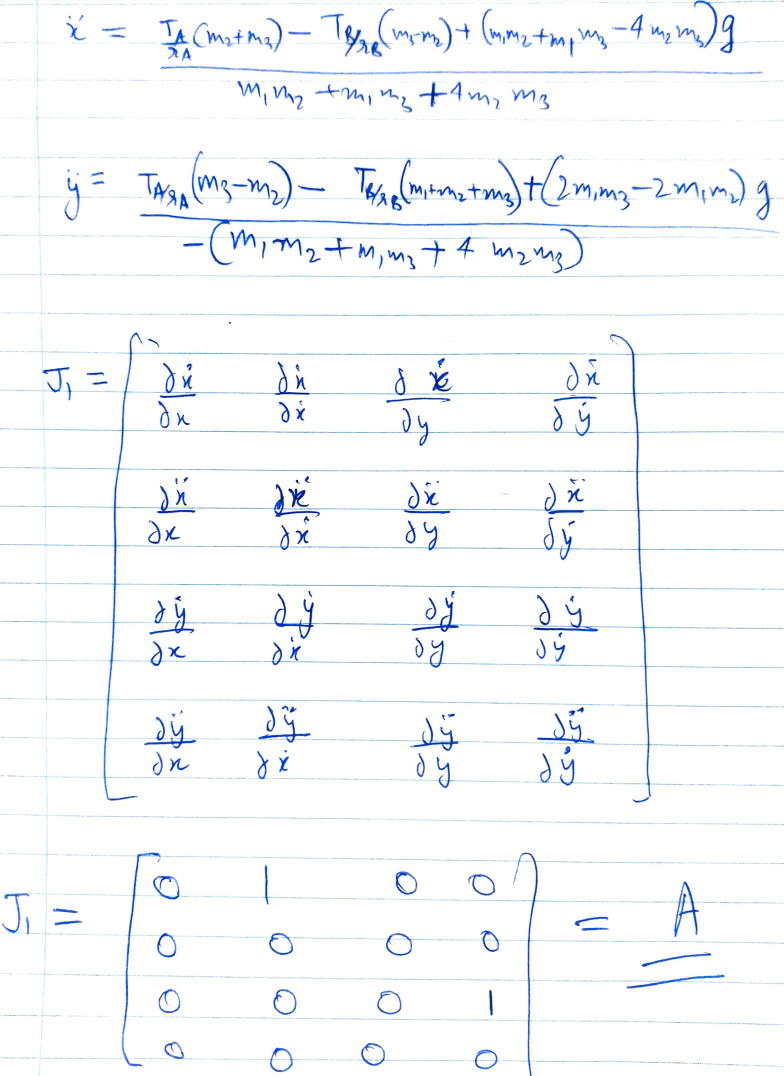 ẍ = (T_A/r_A (m₂+m₃) − T_B/r_B (m₃−m₂) + (m₁m₂+m₁m₃−4m₂m₃)g) / (m₁m₂+m₁m₃+4m₂m₃)
ÿ = (T_A/r_A (m₃−m₂) − T_B/r_B (m₁+m₂+m₃) + (2m₁m₃−2m₁m₂)g) / (−(m₁m₂+m₁m₃+4m₂m₃))
J₁ = [ ∂ẋ/∂x ∂ẋ/∂ẋ ∂ẋ/∂y ∂ẋ/∂ẏ
∂ẍ/∂x ∂ẍ/∂ẋ ∂ẍ/∂y ∂ẍ/∂ẏ
∂ẏ/∂x ∂ẏ/∂ẋ ∂ẏ/∂y ∂ẏ/∂ẏ
∂ÿ/∂x ∂ÿ/∂ẋ ∂ÿ/∂y ∂ÿ/∂ẏ ]
J₁ = [ 0 1 0 0
0 0 0 0
0 0 0 1
0 0 0 0 ] = A